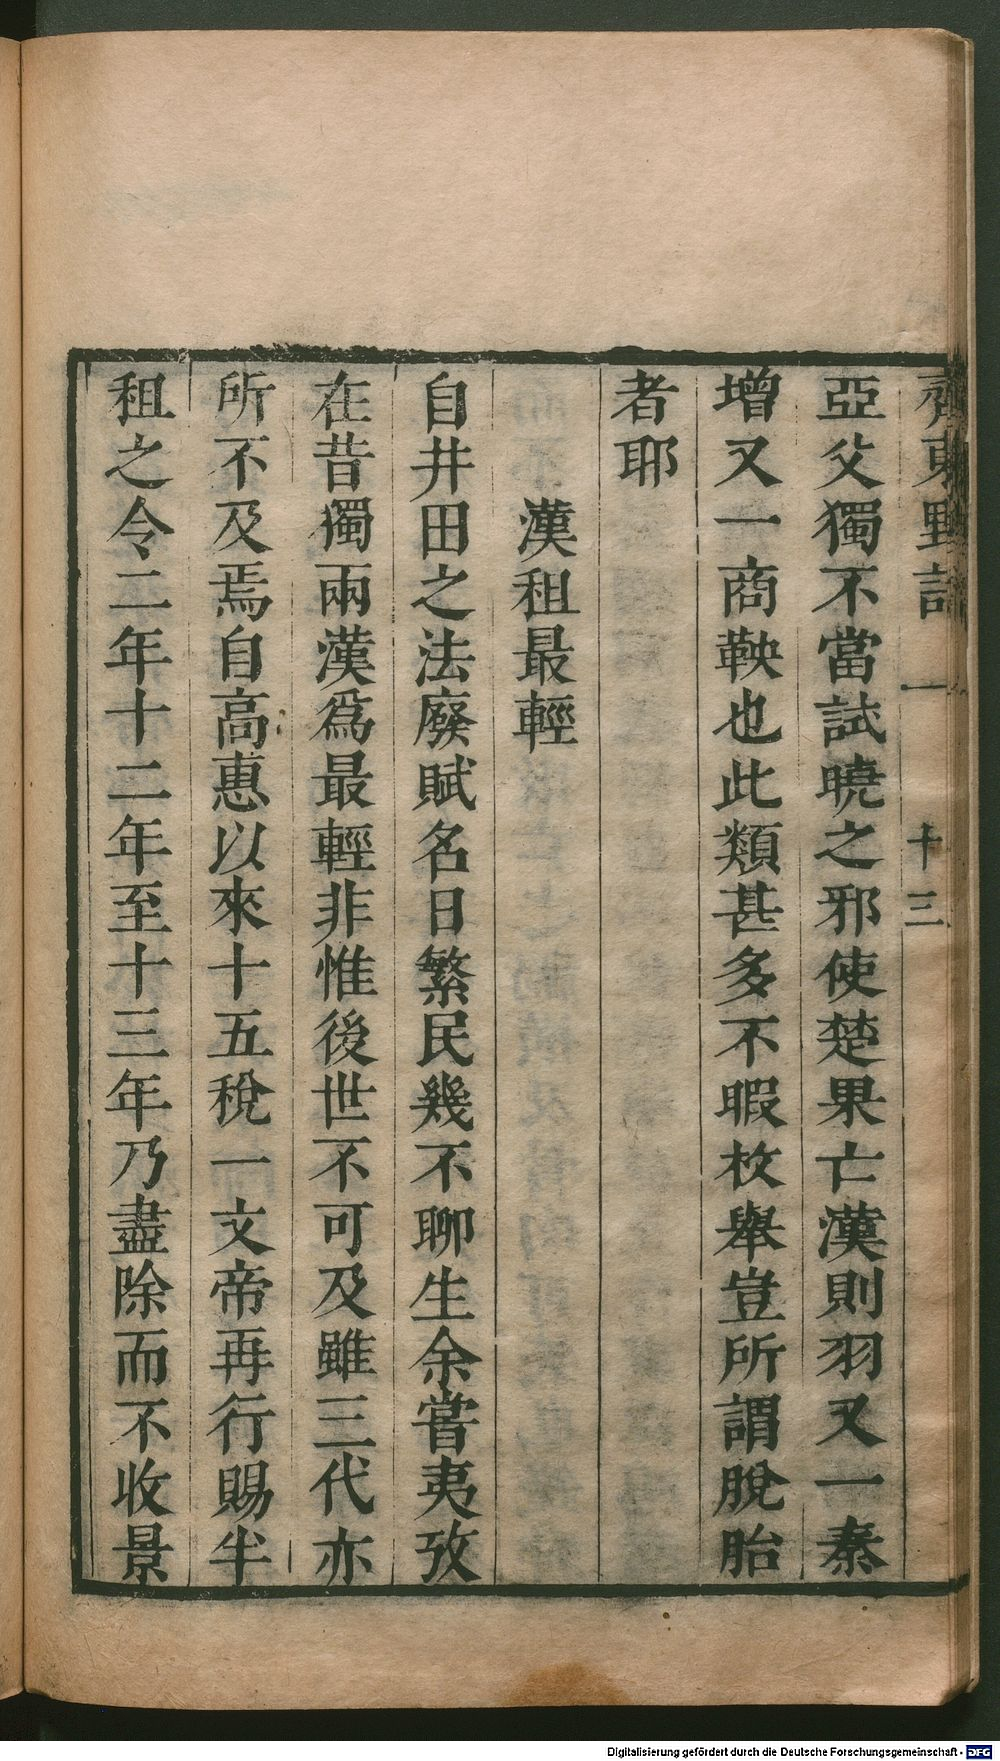 齊東野語 一 十三
亞父獨不當試曉之邪使楚果亡漢則羽又一秦
增又一商鞅也此類甚多不暇枚舉豈所謂脫胎
者耶
漢租最輕
自井田之法廢賦名日繁民幾不聊生余嘗夷攷
在昔獨兩漢爲最輕非惟後世不可及雖三代亦
所不及焉自高惠以來十五稅一文帝再行賜半
租之令二年十二年至十三年乃盡除而不收景
Digitalisierung gefördert durch die Deutsche Forschungsgemeinschaft - DFG